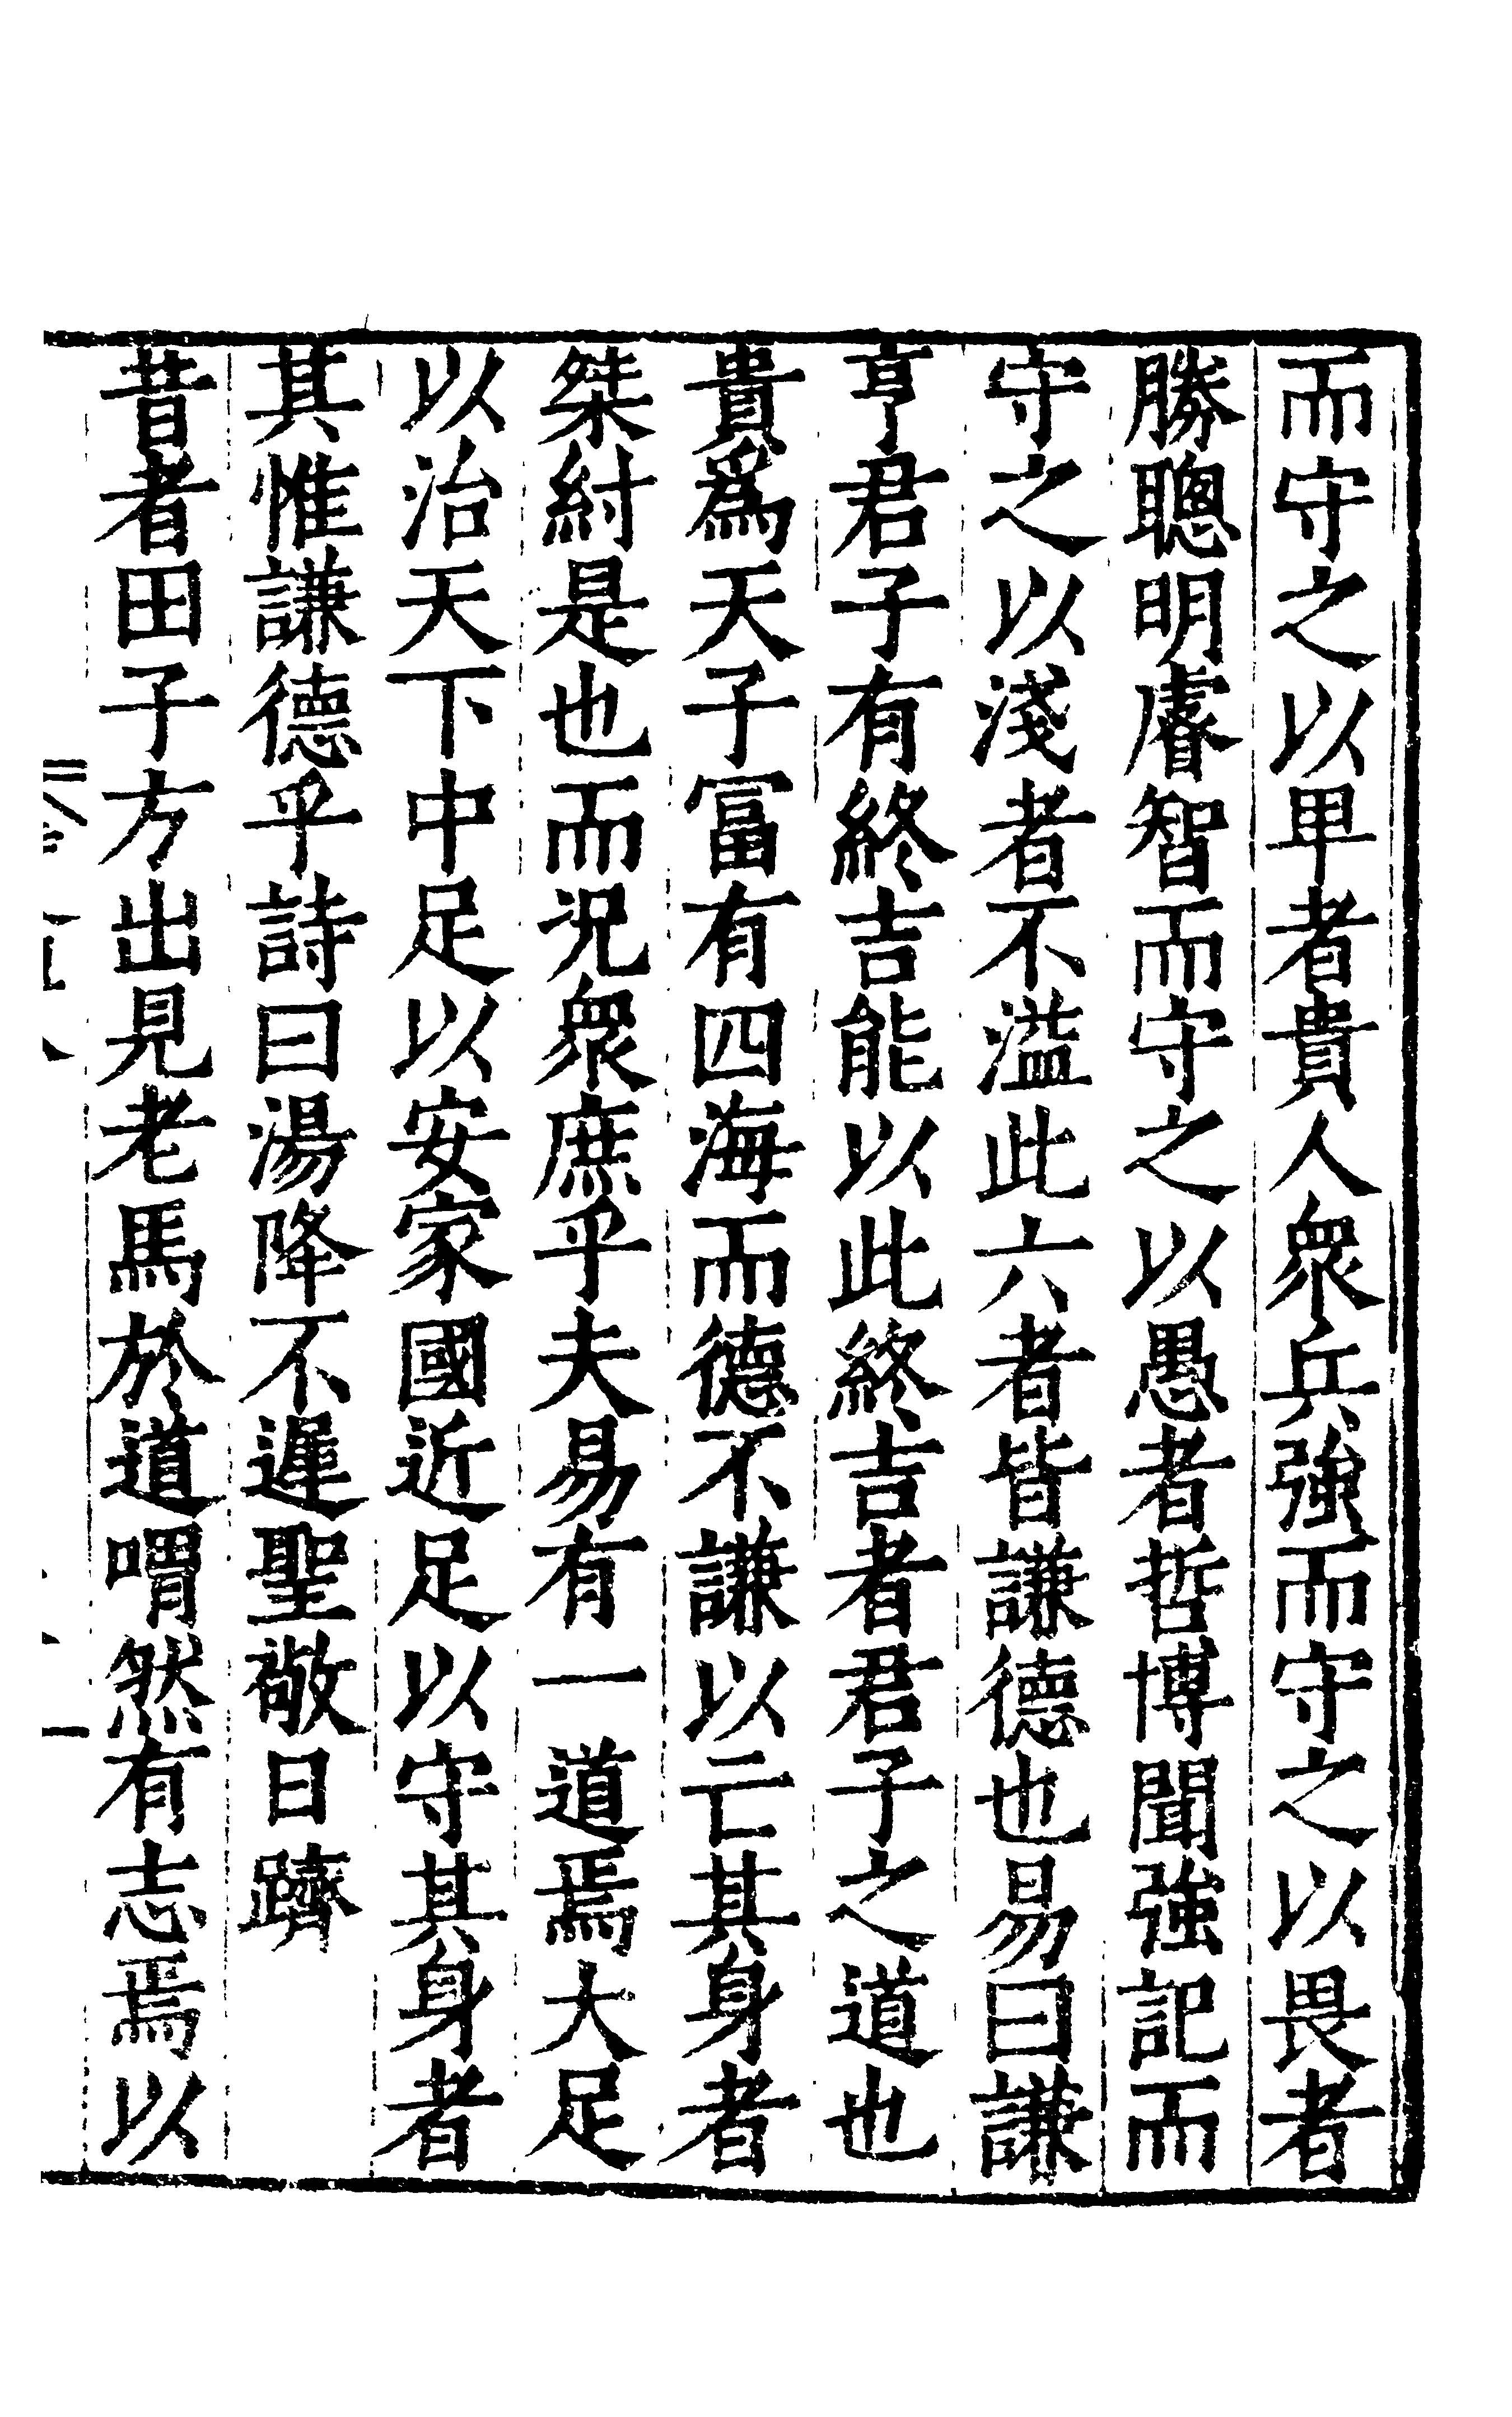 而守之以卑者貴人衆兵強而守之以畏者
勝聰明睿智而守之以愚者哲博聞強記而
守之以淺者不溢此六者皆謙德也易曰謙
亨君子有終吉能以此終吉者君子之道也
貴爲天子富有四海而德不謙以亡其身者
桀紂是也而況衆庶乎夫易有一道焉大足
以治天下中足以安家國近足以守其身者
其惟謙德乎詩曰湯降不遲聖敬日躋
昔者田子方出見老馬於道喟然有志焉以